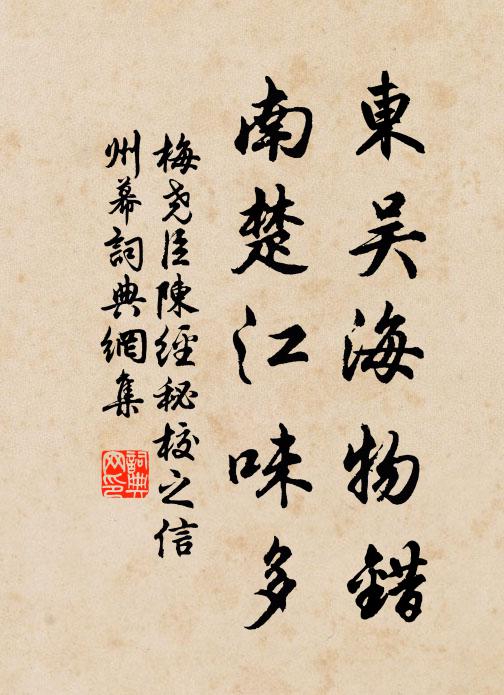 東吴海物錯
南楚江味多
梅尧臣陳經秘校之信
州幕詞典網集
詞典
网印